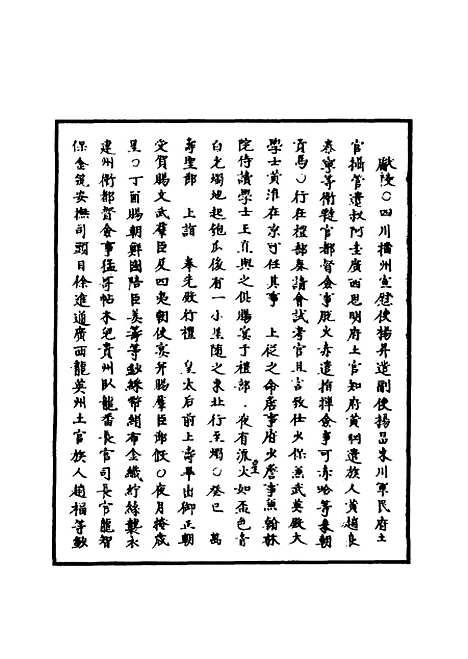 獻陵○四川播州宣慰使楊昇遣副使楊昌東川軍民府土
官攝管遣叔阿壹廣西思明府土官知府黃𤣱遣族人黃趙良
泰寧等衛韃官都督僉事脫火赤遣指揮僉事可赤哈等來朝
貢馬○行在禮部奏請會試考官且言致仕少保兼武英殿大
學士黃淮在京可任其事　上從之命詹事府少詹事兼翰林
院侍讀學士王直與之俱賜宴于禮部○夜有流火如盃色青
白光燭地起匏瓜後有一小星隨之東北行至濁○癸巳　萬
壽聖節　上詣　奉先殿行禮　皇太后前上壽畢出御正朝
受賀賜文武羣臣及四夷朝使宴并賜羣臣節鈔○夜月掩歲
星○丁酉賜朝鮮國陪臣美等等鈔綵幣絹布金織紵絲襲衣
建州衛都督僉事猛哥帖木兒貴州臥龍番長官司長官龍智
保金筑安撫司頭目徐進道廣西龍英州土官族人趙福等鈔